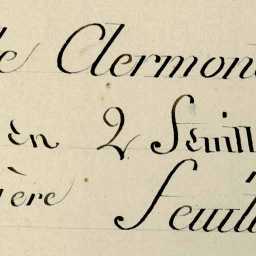 de Clermon
en 2 feuill
ière feuill